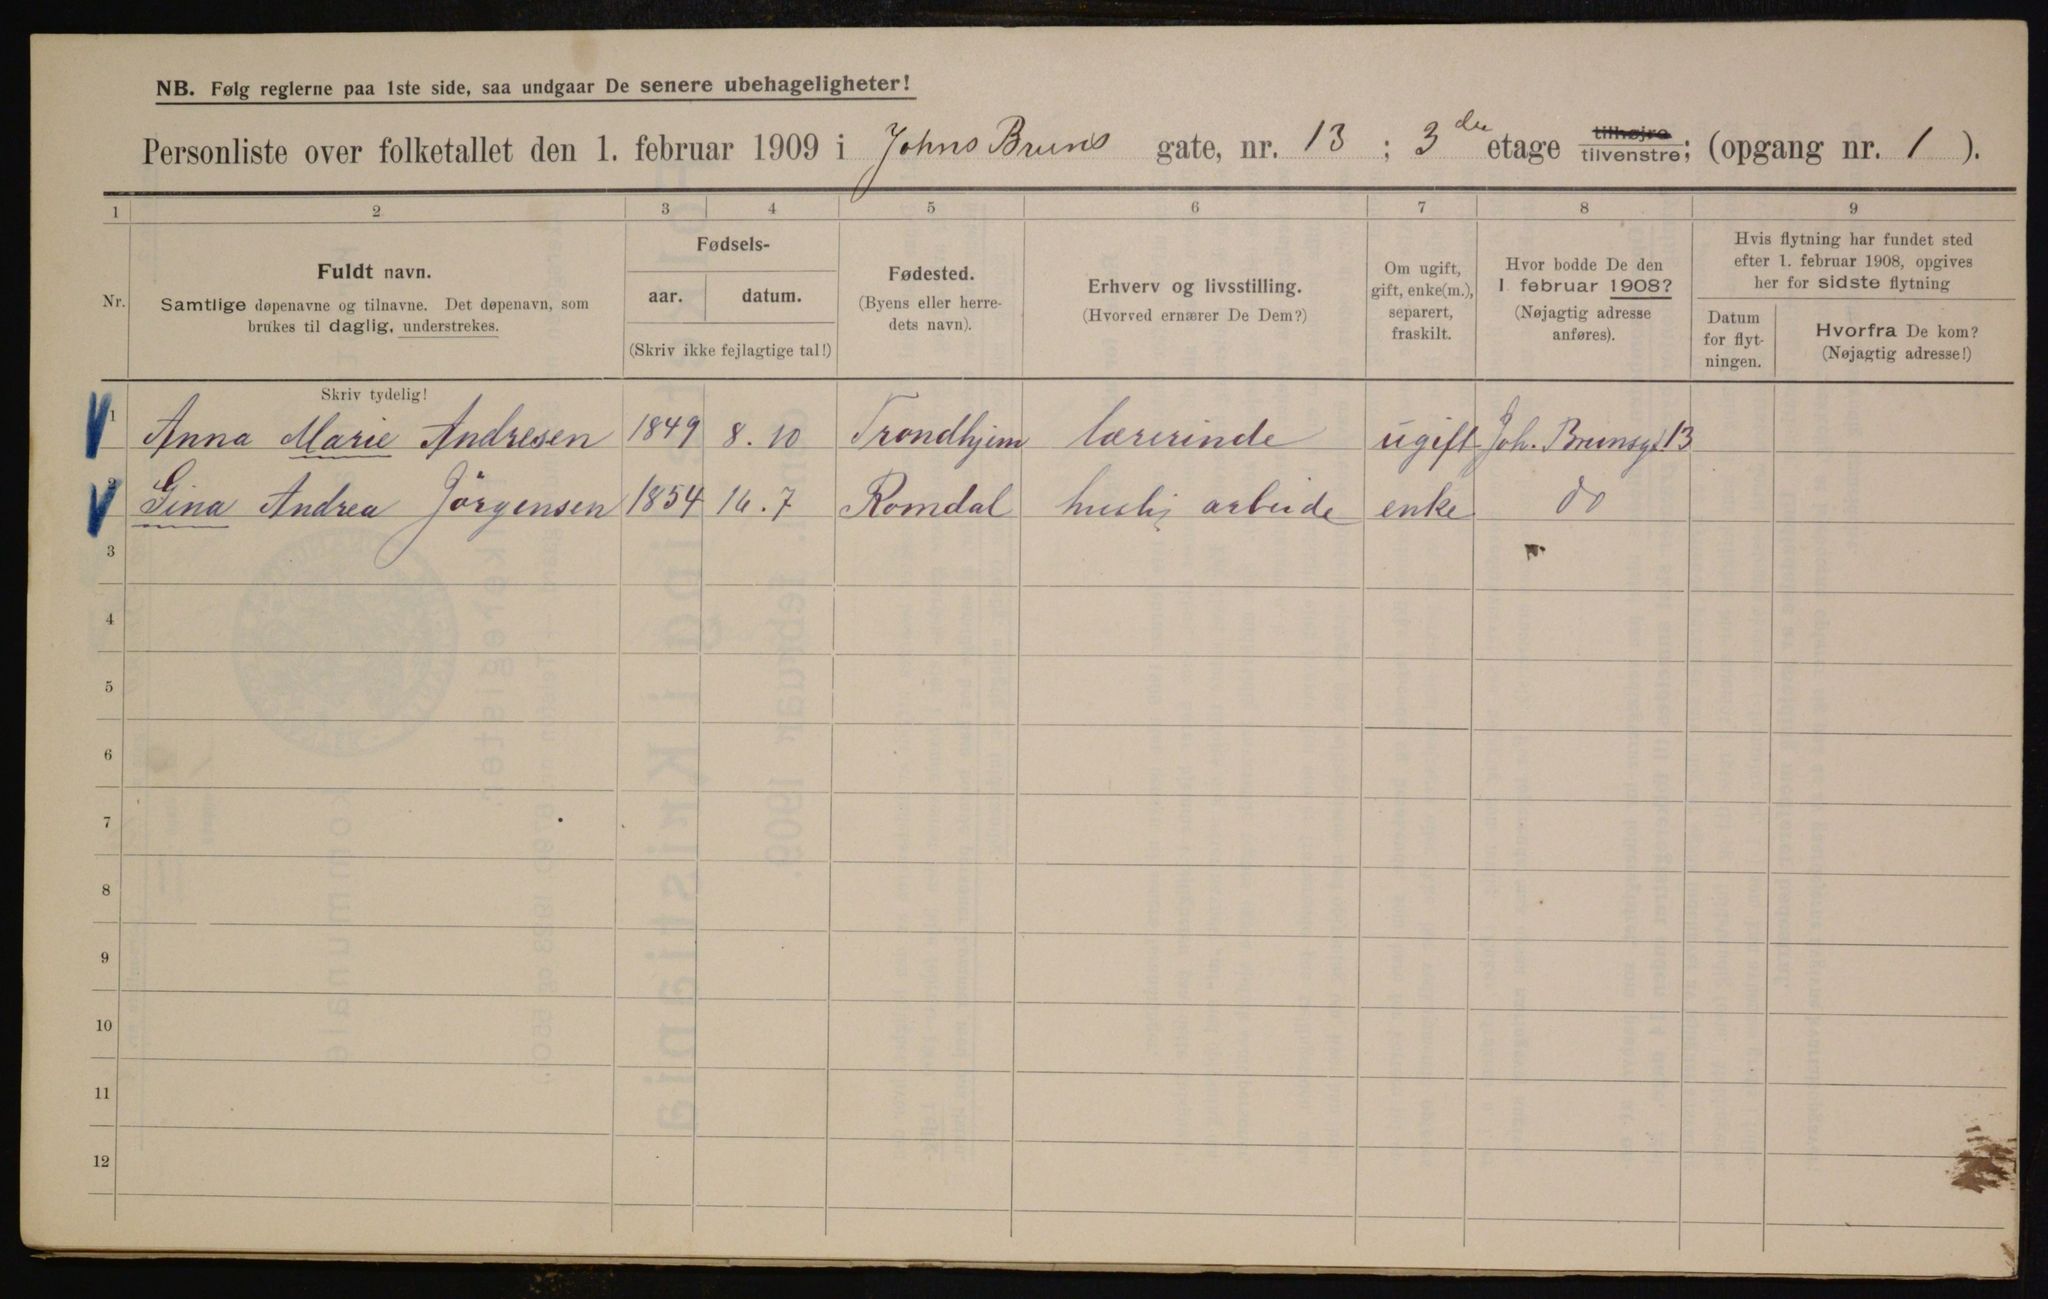 NB. Følg reglerne paa 1ste side, saa undgaar De senere ubehageligheter!
Personliste over folketallet den 1. februar 1909 i Johns Bruns gate, nr. 13 ; 3 die etage tilhøjre tilvenstre; (opgang nr. 1 ).
1 2 3 4 5 6 7 8 9
Nr.
Fuldt navn.
Samtlige døpenavne og tilnavne. Det døpenavn, som
brukes til daglig, understrekes.
Fødsels-
aar. datum.
(Skriv ikke fejlagtige tal!)
Fødested.
(Byens eller herre-
dets navn).
Erhverv og livsstilling.
(Hvorved ernærer De Dem?)
Om ugift,
gift, enke(m.),
separert,
fraskilt.
Hvor bodde De den
1. februar 1908?
(Nøjagtig adresse
anføres).
Hvis flytning har fundet sted
efter 1. februar 1908, opgives
her for sidste flytning
Datum
for flyt-
ningen.
Hvorfra De kom?
(Nøjagtig adresse!)
Skriv tydelig!
1 Anna Marie Andresen 1849 8. 10 Trondhjem lærerinde ugift Joh. Brunsgt 13
2 Gina Andrea Jörgensen 1854 16. 7 Romdal huslig arbeide enke do
3
4
5
6
7
8
9
10
11
12